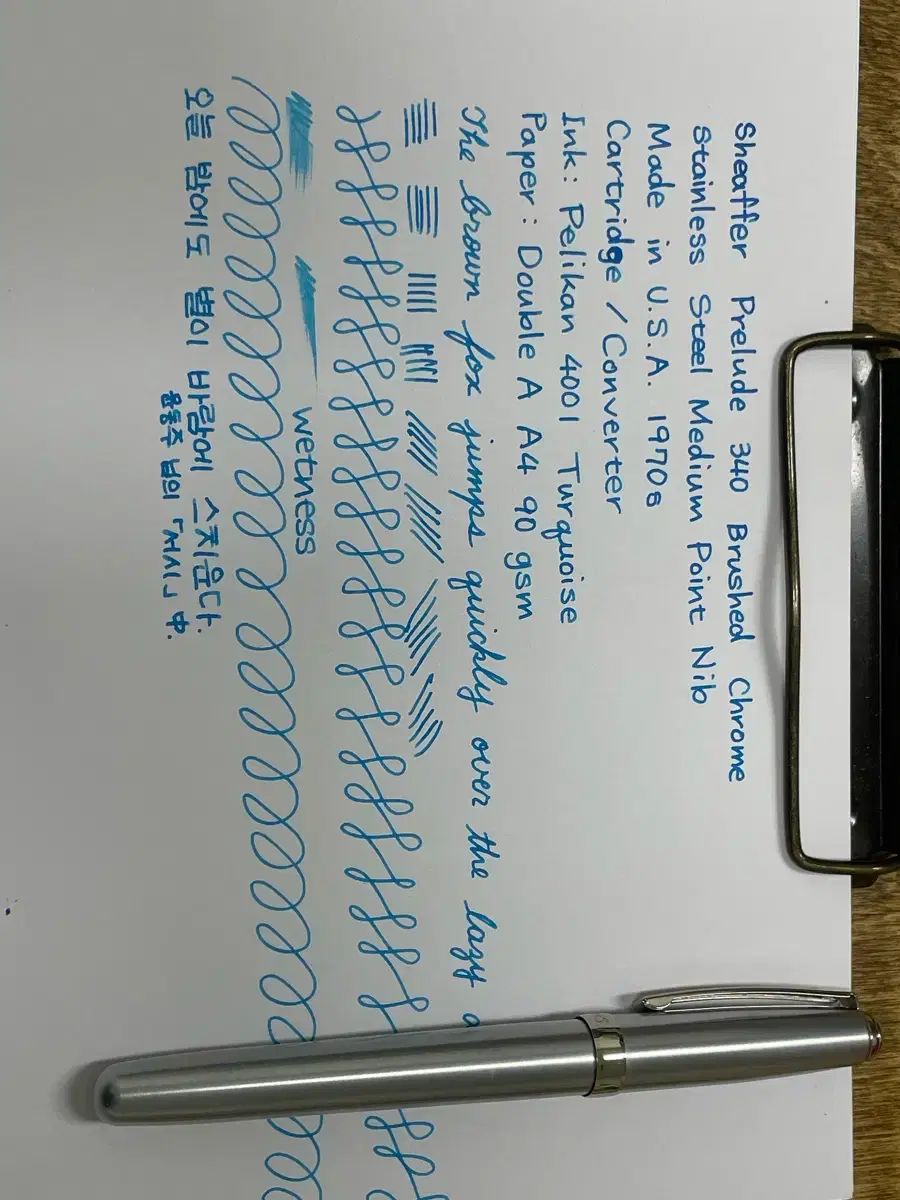 Sheaffer Prelude 340 Brushed Chrome
Stainless Steel Medium Point Nib
Made in U.S.A. 1970s
Cartridge / Converter
Ink: Pelikan 4001 Turquoise
Paper: Double A A4 90 gsm
The brown fox jumps quickly over the lazy
wetness
오늘 밤에도 별이 바람에 스치운다.
윤동주 님의 「서시」 中.